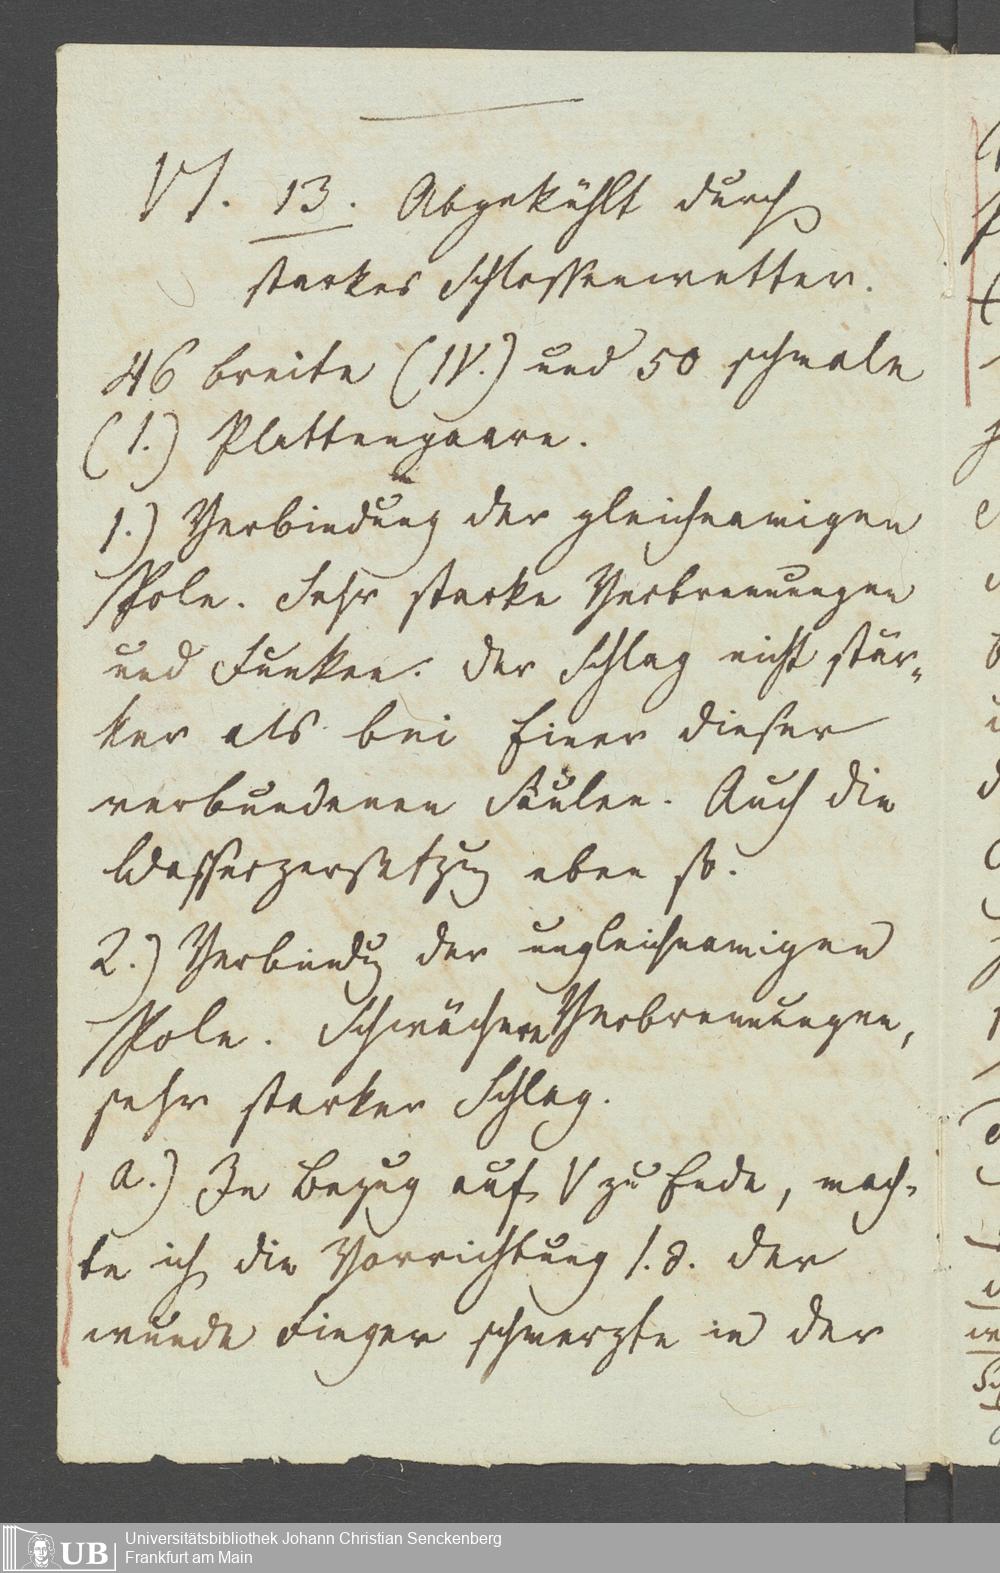 VI. 13. Abgekühlt durch
starkes Schlossenwetter.
46 breite (IV.) und 50 schmale
(I.) Plattenpaare.
1.) Verbindung der gleichnamigen
Pole. Sehr starke Verbrennungen
und Funken. Der Schlag nicht stär-
ker als bei Einer dieser
verbundenen Säulen. Auch die
Wasserzersetzung eben so.
2.) Verbindung der ungleichnamigen
Pole. Schwächere Verbrennungen,
sehr starker Schlag.
a.) In Bezug auf V zu Ende, mach-
te ich die Vorrichtung 1.8. der
wunde Finger schmerzte in der
UB
Universitätsbibliothek Johann Christian Senckenberg
Frankfurt am Main